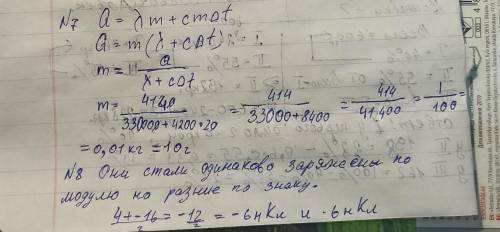 №7 Q = λm + cmΔt
Q = m(λ + cΔt)
m = Q / (λ + cΔt)
m = 4140 / (330000 + 4200 * 20) = 414 / (33000 + 8400) = 414 / 41400 = 1 / 100 =
= 0,01 кг = 10 г
№8 Они стали одинаково заряжены по
модулю но разние по знаку.
4 + -16 = -12 / 2 = -6 нКл и -6 нКл